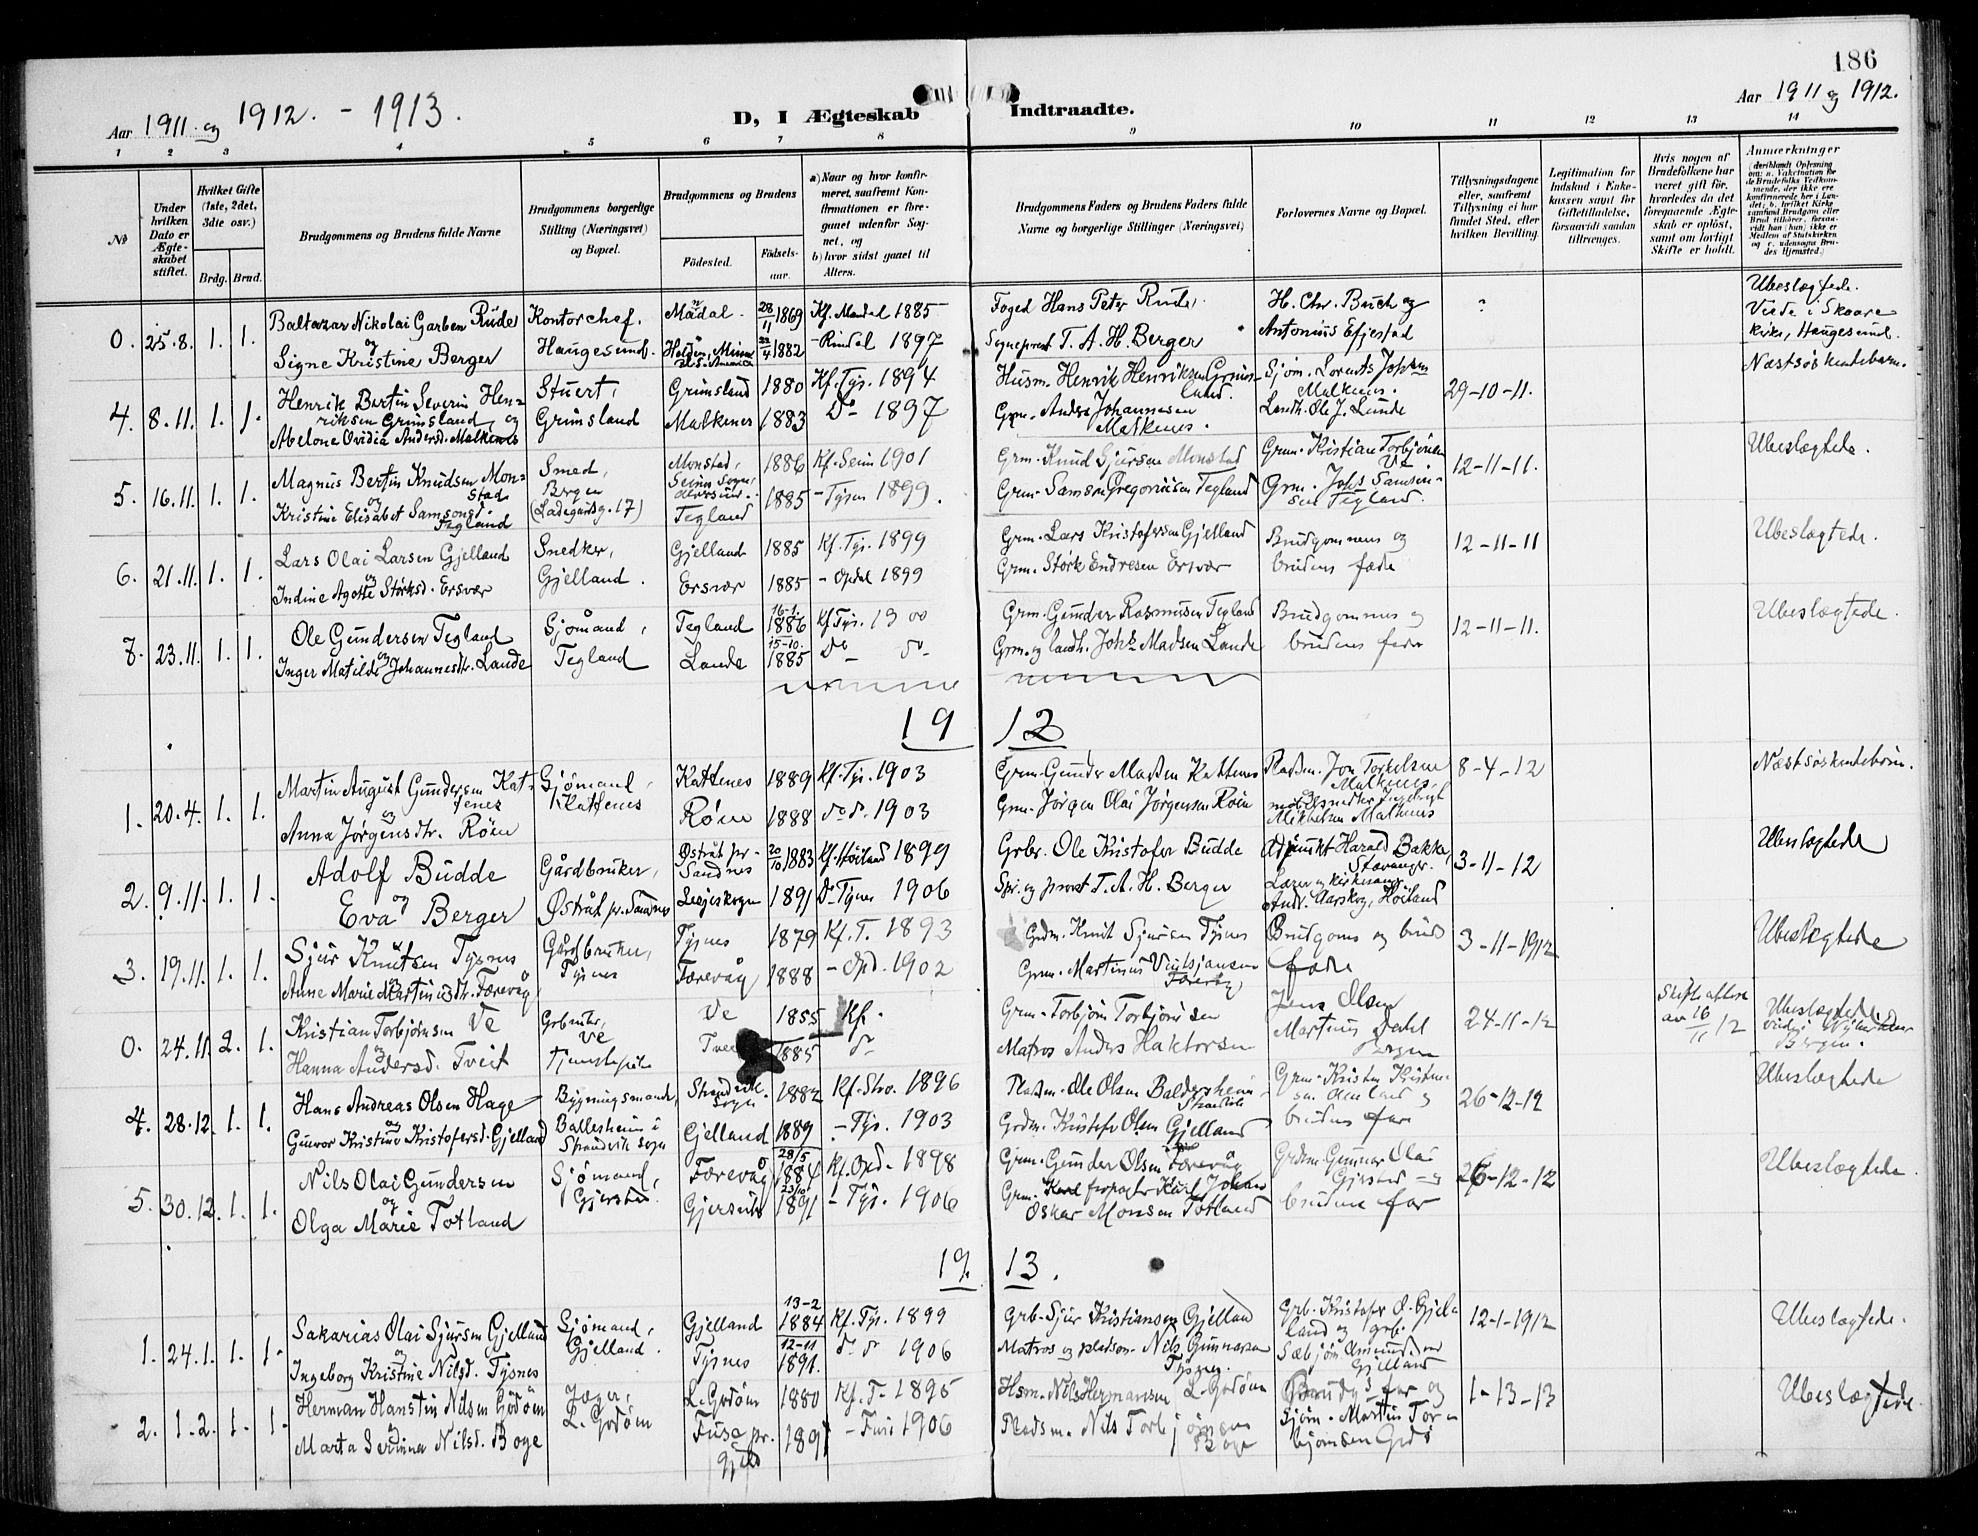 186
Aar 1911 og 1912. - 1913.
D, I Ægteskab Indtraadte.
Aar 1911 og 1912.
1 2 3 4 5 6 7 8 9 10 11 12 13 14
No
Under hvilken Dato er Ægteskabet stiftet.
Hvilket Gifte (1ste, 2det, 3die osv.)
Brdg. Brud.
Brudgommens og Brudens fulde Navne
Brudgommens borgerlige Stilling (Næringsvei) og Bopæl.
Brudgommens og Brudens
Fødested. Fødselsaar.
a) Naar og hvor konfirmeret, saafremt Konfirmationen er foregaaet udenfor Sognet, og
b) hvor sidst gaaet til Alters.
Brudgommens Faders og Brudens Faders fulde Navne og borgerlige Stillinger (Næringsvei)
Forlovernes Navne og Bopæl.
Tillysningsdagene eller, saafremt Tillysning ei har fundet Sted, efter hvilken Bevilling.
Legitimation for Indskud i Enkekassen samt for Giftetilladelse, forsaavidt saadan tiltrænges.
Hvis nogen af Brudefolkene har været gift før, hvorledes da det foregaaende Ægteskab er opløst, samt om lovligt Skifte er holdt.
Anmerkninger
0. 25.8. 1. 1. Baltazar Nikolai Garben Rüde Kontorchef, Mådal 28/11 1869 Kf. Mandal 1885 Foged Hans Peter Rude, H. Chr. Buch og Ubeslægtede.
og Haugesund. Antonius Efjestad Viede i Skaare
Signe Kristine Berger 22/4 1882 - Rindal 1897 Sogneprest T. A. H. Berger kirke, Haugesund.
4. 8.11. 1. 1. Henrik Bertin Severin Hen- Stuert, Grimsland 1880 Kf. Tys. 1894 Husm. Henrik Henriksen Grims- Sjøm. Lorents Johs. 29-10-11. Næstsøskendebarn.
riksen Grimsland, og Grimsland land. Malkenes.
Abelone Ovidia Andersd. Malkenes Malkenes 1883 Do 1897 Grm. Anders Johannesen Malkenes. Landh. Ole J. Lunde
5. 16.11. 1. 1. Magnus Bertin Knudsen Mon- Smed, Monstad, 1886 Kf. Seim 1901 Grm. Knud Sjursen Monstad Grm. Kristian Torbjørnsen 12-11-11. Ubeslægtede.
stad og Bergen Seims Sogn,
Kristine Elisabet Samsonsd. Tegland (Ladegårdsg. 17) Tegland 1885 - Tysn 1899. Grm. Samson Gregoriusen Tegland Grm. Johs Samson- sen Tegland.
6. 21.11. 1. 1. Lars Olai Larsen Gjelland Snedker, Gjelland 1885 Kf. Tys. 1899 Grm. Lars Kristofersen Gjelland Brudgommens og 12-11-11 Ubeslægtede.
og Gjelland.
Indine Agotte Størksd. Ersvær Ersvær 1885 - Opdal 1899 Grm. Størk Endresen Ersvær brudens fædre
7. 23.11. 1. 1. Ole Gundersen Tegland Sjømand, Tegland 16-1. 1886 Kf Tys. 1900 Grm. Gunder Rasmusen Tegland Brudgommens og 12-11-11. Ubeslægtede.
og Tegland
Inger Matilde Johannesdtr. Lande Lande 15-10. 1885 Do - Do- Grm. og landh. Johs Madsen Lande brudens fader
1912
1. 20.4. 1. 1. Martin August Gundersen Kat- Sjømand, Kattenes 1889 Kf. Tys. 1903 Grm. Gunder Madsen Kattenes Pladsm. Jon Torkelsen 8-4-12 Næstsøskendebørn.
tenes og Kattenes Malkenes,
Anna Jørgensdtr. Røen Røen 1888 do do. 1903 Grm. Jørgen Olai Jørgensen Røen Mikkelsen Malkenes
2. 9.11. 1. 1. Adolf Budde Gårdbruker, Østråt pr. Sandnes 20/10 1883 Kf. Høiland 1899 Grbr. Ole Kristofer Budde Adjunkt Harald Bakke, Stavanger. 3-11-12 Ubeslægtede
og Østråt pr. Sandnes
Eva Berger Leojeskogn 1891 Do Tysnes 1906 Spr. og prost T. A. H. Berger Lærer og kirkesanger Andr. Aarskog, Høiland
3. 19.11. 1. 1. Sjur Knutsen Tysnes Gårdbruker, Tysnes 1879 Kf. T. 1893 Grdm. Knut Sjursen Tysnes Brudgoms og bruds 3-11-1912 Ubeslægtede
og Tysnes
Anne Marie Martinusdtr. Færevåg Færevåg 1888 - Opd. 1902 Grm. Martinus Færevåg fædre
0. 24.11. 2. 1. Kristian Torbjørnsen Ve Grbruker, Ve Ve 1855 Kf. Grm. Torbjørn Torbjørnsen Jens Olsen 24-11-12 Skifteattest av 16/11 12 Ubeslægtede
og
Hanna Andersd. Tveit Tjenestepike Tveit 1885 do Matros Anders Haktorsen Martinus Dahl Bergen viede i Bergen.
4. 28.12. 1. 1. Hans Andreas Olsen Hage Bygningsmand, Strandvik Sogn. 1882 Kf. Stra. 1896 Pladsm. Ole Olsen Baldersheim Strandvik Grm. Kristen Kristen- 26-12-12 Ubeslægtede
og Baldersheim i
Gunvor Kristine Kristofersd. Gjelland Strandvik sogn Gjelland 1889 - Tys. 1903 Grdm. Kristofer Olsen Gjelland brudens far
5. 30.12. 1. 1. Nils Olai Gundersen Sjømand, Færevåg 28/5 1884 Kf. Opd. 1898 Grm. Gunder Olsen Færevåg Grdm. Gunnar Olai 26-12-12 Ubeslægtede.
og Gjerstad. Gjerstad og
Olga Marie Totland Gjersvik 23/10 1891 - Tys. 1906 Grm. Karl Johan Oskar Monsen Totland brudens far
1913.
1. 24.1. 1. 1. Sakarias Olai Sjursen Gjelland Sjømand, Gjelland 13-2 1884 Kf. Tys. 1899 Grb. Sjur Kristiansen Gjelland Grb. Kristofer O. Gjel- 12-1-1912 Ubeslægtede.
og Gjelland. land og grb.
Ingeborg Kristine Nilsd. Tysnes Tysnes 12-11 1891. do do 1906 Matros og pladsm. Nils Gunnarsen Tysnes. Sæbjørn Amundsen Gjelland
2. 1-2. 1. 1. Herman Hanstin Nilsen Godøen Jæger, L. Godøen 1880 Kf. T. 1895 Hsm. Nils Hermansen L. Godøen Brudgs far og 1-13-13 Ubeslægtede.
og L. Godøen
Marta Serina Nilsd. Boge Fuse pr. gjeld 1891 - Fusi 1906 Pladsm. Nils Torbjørnsen Boge Sjøm. Martin Tor- bjørnsen Godø